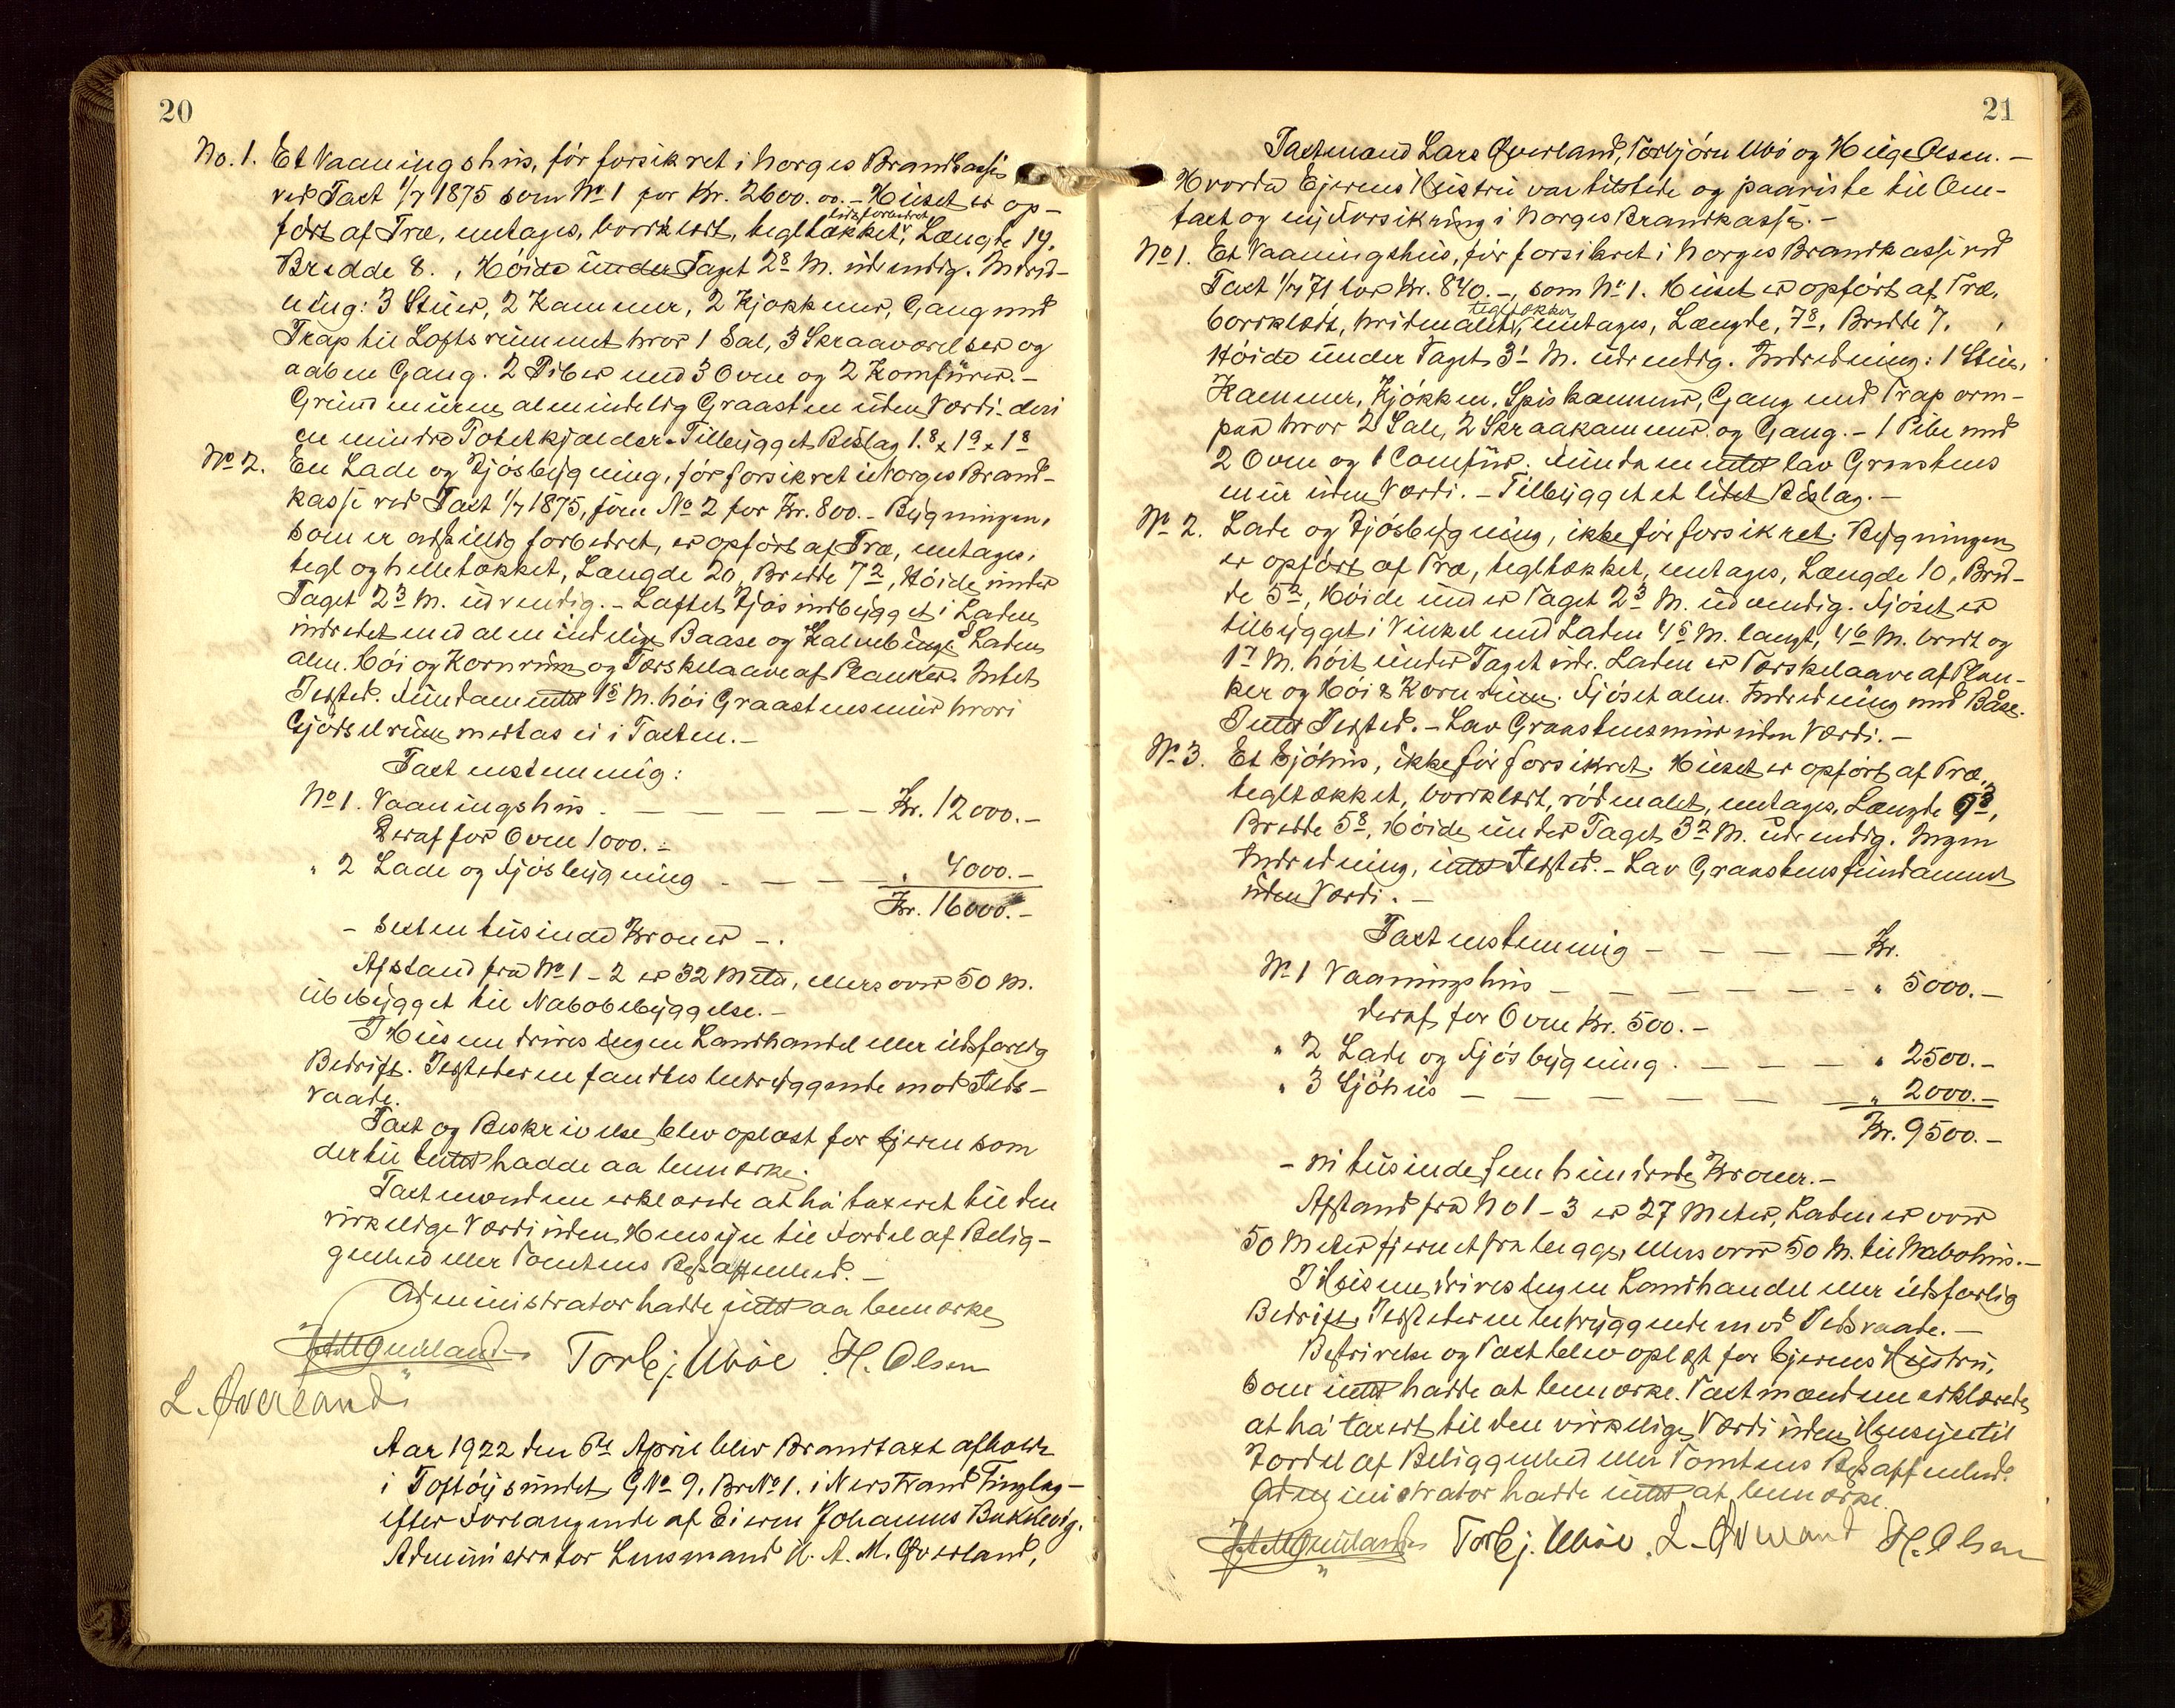 20
No. 1. Et Vaaningshus, før forsikret i Norges Brandkasse
ved Taxt 1/7 1875 som No 1 for Kr. 2600.00. - Huset er op-
ført af Træ, entages, bordklædt, tegltækket, Længde 19.
Bredde 8. , Høide under Taget 28 M. udvendig. Indred-
ning: 3 Stuer, 2 Kammer, 2 Kjøkkener, Gang med
Trap til Loftsrummet hvor 1 Sal, 3 Skraaværelser og
aaben Gang. 2 Piber med 3 Ovne og 2 Komfurer. -
Grundmuren almindelig Graasten uden Værdi - deri
en mindre Potetkjælder. Tilbygget Bislag 1.8 x 19 x 18
No 2. En Lade og Fjøsbygning, før forsikret i Norges Brand-
kasse ved Taxt 1/7 1875, som No 2 for Kr. 800. - Bygningen,
som er adskillig forbedret, er opført af Træ, entages,
tegl og helletækket, Længde 20, Bredde 72, Høide under
Taget 23 M. udvendig. - Laftet Fjøs indbygget i Laden
indredet med almindelige Baase og Kalvebinge. I Laden
alm. Høi og Kornrum og Tærskelaave af Planker. Intet
Ildsted. Fundamentet 15 M. høi Graastensmur hvori
Gjødselrum medtas ei i Taxten. -
Taxt enstemmig:
No 1. Vaaningshus. - - - - - Kr. 12000. -
Deraf for Ovne 1000. -
" 2 Lade og Fjøsbygning - - - - " 4000. -
Kr. 16000. -
- Sexten tusinde Kroner - .
Afstand fra No 1 - 2 er 32 Meter, ellers over 50 M.
ubebygget til Nabobebyggelse. -
I Husene drives ingen Landhandel eller ildsfarlig
Bedrift. Ildstederne fandtes betryggende mod Ilds-
vaade.
Taxt og Beskrivelse blev oplæst for Ejeren som
dertil intet hadde aa bemærke.
Taxtmændene erklærede at ha taxeret til den
virkelige Værdi uden Hensyn til Fordel af Belig-
genhed eller Tomtens Beskaffenhed. -
Administrator hadde intet aa bemærke
Torbj. Ubøe H. Olsen
L. Øverland
Aar 1922 den 6te April blev Brandtaxt afholdt
i Toftøysundet, G No 9, Br No 1. i Nerstrand Tinglag -
efter Forlangende af Eieren Johannes Bukklevig.
Administrator Lensmand A. M. Øverland,
21
Taxtmænd Lars Øverland, Torbjørn Ubø og Helge Olsen. -
Hvorda Ejerens Hustru var tilstede og paaviste til Om-
taxt og ny Forsikring i Norges Brandkasse. -
No 1. Et Vaaningshus, før forsikret i Norges Brandkasse ved
Taxt 1/7 71 for Kr. 840. -, som No 1. Huset er opført af Træ,
tegltækket
bordklædt, hvidmalet, entages, Længde, 78, Bredde 7. ,
Høide under Taget 31 M. udvendig. Indredning: 1 Stue,
Kammer, Kjøkken, Spiskammer, Gang med Trap oven-
paa hvor 2 Sale, 2 Skraakammer og Gang. - 1 Pibe med
2 Ovne og 1 Comfur. Fundamentet lav Graastens
mur uden Værdi. - Tilbygget et litet Bislag. -
No 2. Lade og Fjøsbygning, ikke før forsikret. Bygningen
er opført af Træ, tegltækket, entages, Længde 10, Bred-
de 52, Høide under Taget 23 M. udvendig. Fjøset er
tilbygget i Vinkel med Laden 45 M. langt, 46 M. bredt og
17 M. høit under Taget udv. Laden er Tærskelaave af Plan-
ker og Høi & Kornrum. Fjøset alm. Indredning med Båse.
Intet Ildsted. - Lav Graastensmur uden Værdi. -
No 3. Et Sjøhus, ikke før forsikret. Huset er opført af Træ,
tegltækket, bordklædt, rødmalet, entages, Længde 93,
Bredde 58, Høide under Taget 32 M. udvendig. Ingen
Indredning, intet Ildsted. - Lav Graastensfundament
uden Værdi. -
Taxt enstemmig - - - - Kr.
No 1 Vaaningshus - - - - - - - " 5000. -
deraf for Ovne Kr. 500. -
" 2 Lade og Fjøsbygning. - - - " 2500. -
" 3 Sjøhus - - - - - - " 2000. -
Kr. 9500. -
- Ni tusinde fem hundrede Kroner. -
Afstand fra No 1 - 3 er 27 Meter, Laden er over
50 Meter fjernet fra begge, ellers over 50 M. til Nabohus. -
I Husene drives ingen Landhandel eller ildsfarlig
Bedrift, Ildstederne betryggende mod Ildsvaade. -
Beskrivelse og Taxt blev oplæst for Ejerens Hustru,
som intet hadde at bemærke. Taxtmændene erklærede
at ha taxert til den virkelige Værdi uden Hensyn til
Fordel af Beliggenhed eller Tomtens Beskaffenhed.
Administrator hadde intet at bemærke.
Torbj. Ubøe. L. Øverland H. Olsen